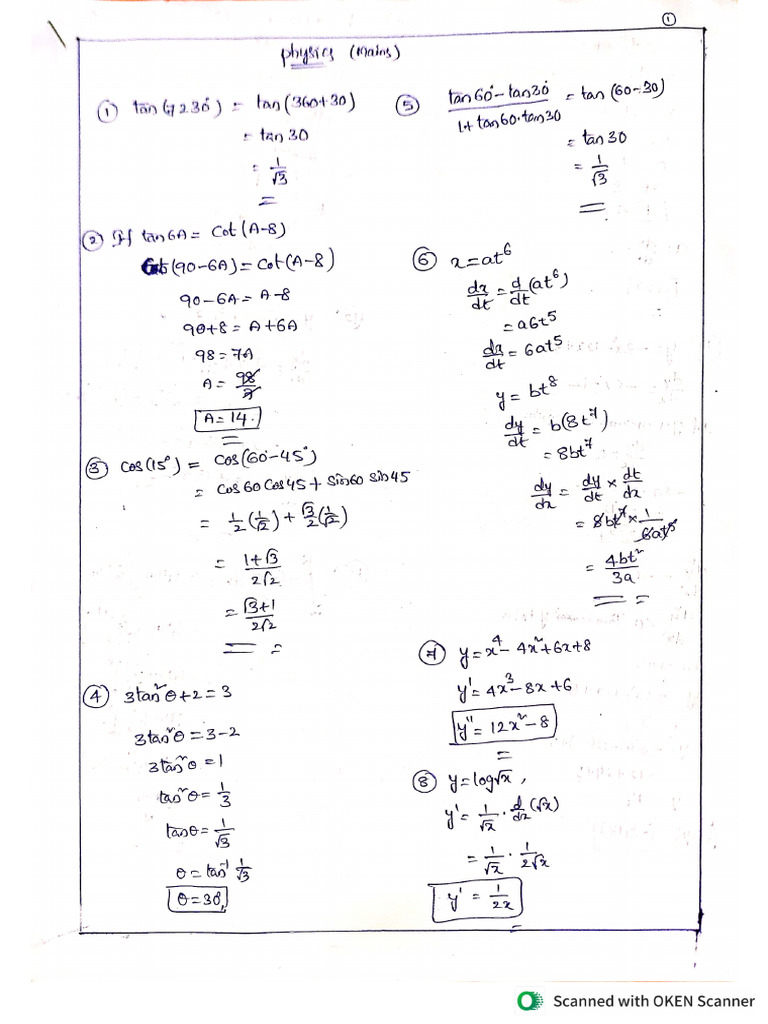 ①
physics (Mains)
① tan(7230°) = tan(360+30)
= tan 30
= 1/√3
② If tan6A = Cot (A-8)
Cot (90-6A) = Cot (A-8)
90-6A = A-8
90+8 = A+6A
98 = 7A
A = 98/7
A = 14.
③ cos(15°) = cos(60-45°)
= cos60 Cos45 + Sin60 Sin45
= 1/2 (1/√2) + √3/2 (1/√2)
= 1+√3/2√2
= √3+1/2√2
④ 3tan²θ+2 = 3
3tan²θ = 3-2
3tan²θ = 1
tan²θ = 1/3
tanθ = 1/√3
θ = tan⁻¹ 1/√3
θ = 30°,
⑤ tan60°-tan30°/1+tan60·tan30 = tan (60-30)
= tan 30
= 1/√3
⑥ x = at⁶
dx/dt = d/dt (at⁶)
= a6t⁵
dx/dt = 6at⁵
y = bt⁸
dy/dt = b(8t⁷)
= 8bt⁷
dy/dx = dy/dt × dt/dx
= 8bt⁷ × 1/6at⁵
= 4bt²/3a
⑦ y = x⁴ - 4x² + 6x + 8
y' = 4x³ - 8x + 6
y'' = 12x² - 8
⑧ y = log√x ,
y' = 1/√x · d/dx (√x)
= 1/√x · 1/2√x
y' = 1/2x
Scanned with OKEN Scanner